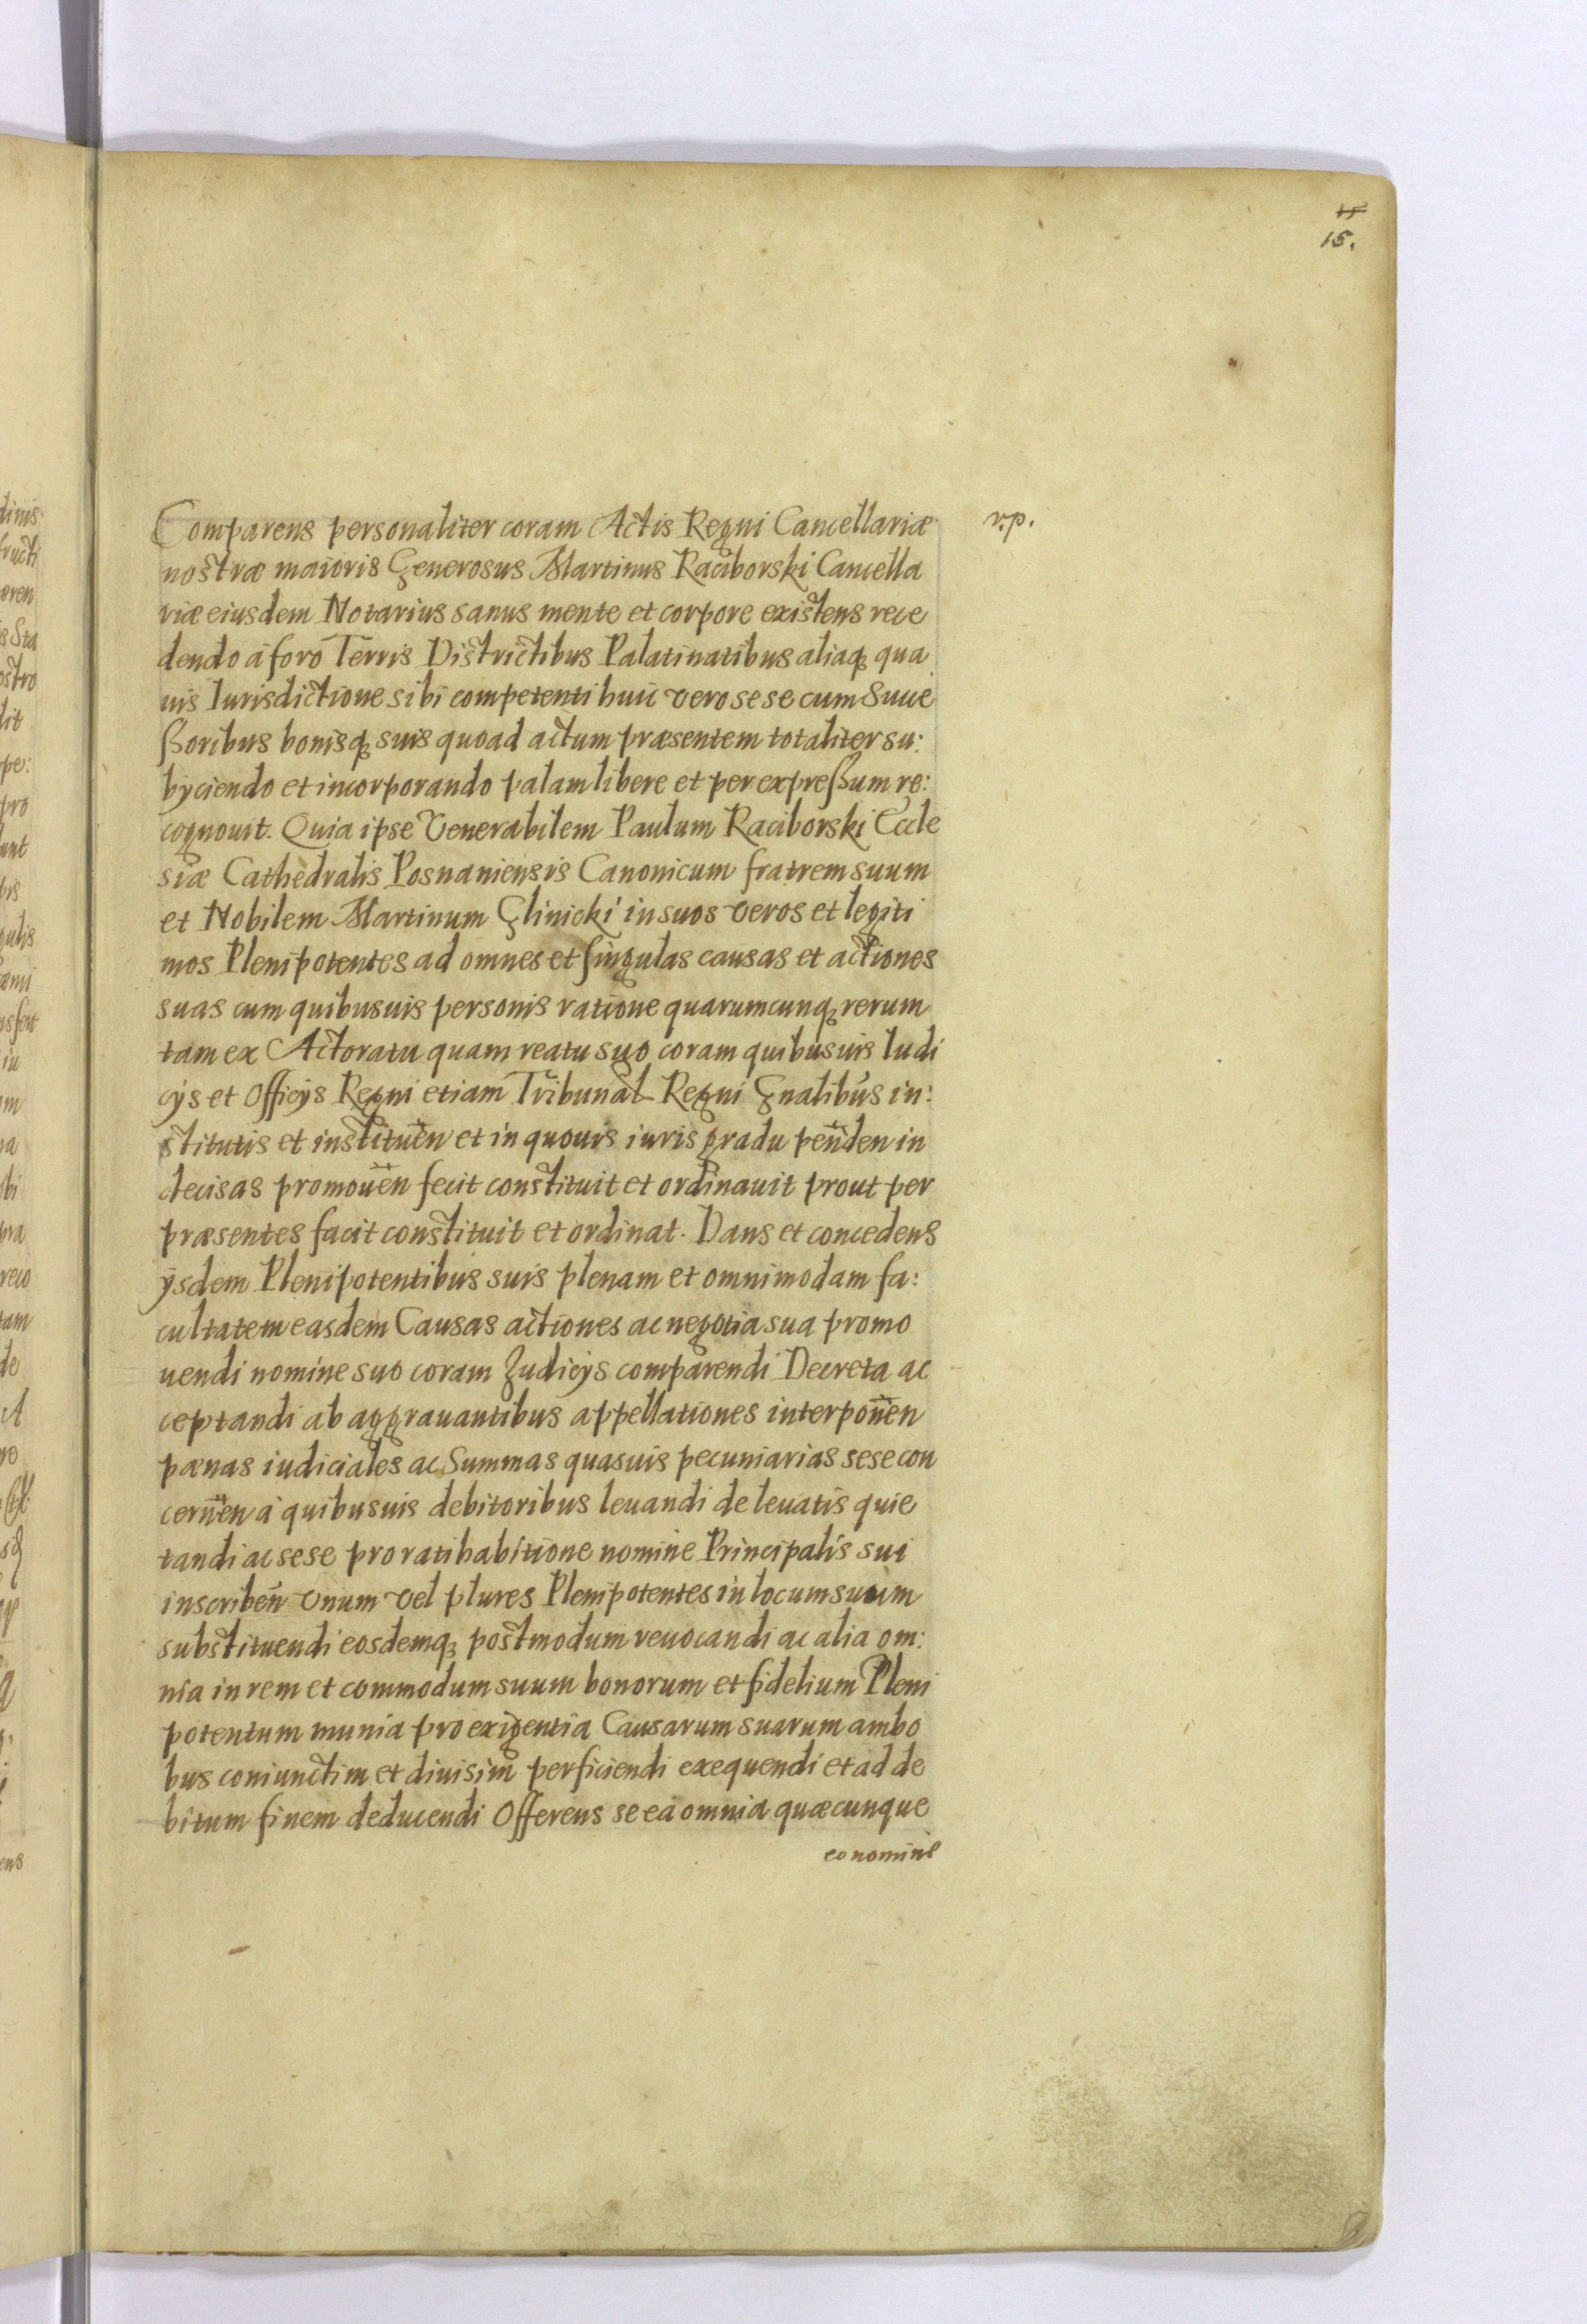 15.
Comparens personaliter coram Actis Regni Cancellariæ r.p.
nostræ maioris Generosus Martinus Raciborski Cancella
riæ eiusdem Notarius sanus mente et corpore existens rece
dendo à foro Terris Districtibus Palatinatibus aliaq₃ qua
uis Iurisdictione sibi competenti huic vero sese cum Succe
ßoribus bonisq₃ suis quoad actum præsentem totaliter su:
bÿciendo et incorporando palam libere et per expreßum re:
cognouit. Quia ipse Venerabilem Paulum Raciborski Eccle
siæ Cathedralis Posnaniensis Canonicum fratrem suum
et Nobilem Martinum Glinicki in suos veros et legiti
mos Plenipotentes ad omnes et singulas causas et actiones
suas cum quibusuis personis ratione quarumcunq₃ rerum
tam ex Actoratu quam reatu suo coram quibusuis Iudi
cÿs et Officÿs Regni etiam Tribunal Regni Gnalibus in:
stitutis et instituen et in quouis iuris gradu penden in
decisas promouen fecit constituit et ordinauit prout per
præsentes facit constituit et ordinat. Dans et concedens
ÿsdem Plenipotentibus suis plenam et omnimodam fa:
cultatem easdem Causas actiones ac negotia sua promo
uendi nomine suo coram Judicÿs comparendi Decreta ac
ceptandi ab aggrauantibus appellationes interponen
pænas iudiciales ac Summas quasuis pecuniarias sese con
cernen à quibusuis debitoribus leuandi de leuatis quie
tandi ac sese pro ratihabitione nomine Principalis sui
inscriben vnum vel plures Plenipotentes in locum suum
substituendi eosdemq₃ postmodum reuocandi ac alia om:
nia in rem et commodum suum bonorum et fidelium Pleni
potentum munia pro exigentia Causarum suarum ambo
bus coniunctim et diuisim perficiendi exequendi et ad de
bitum finem deducendi Offerens se ea omnia quæcunque
eo nomine